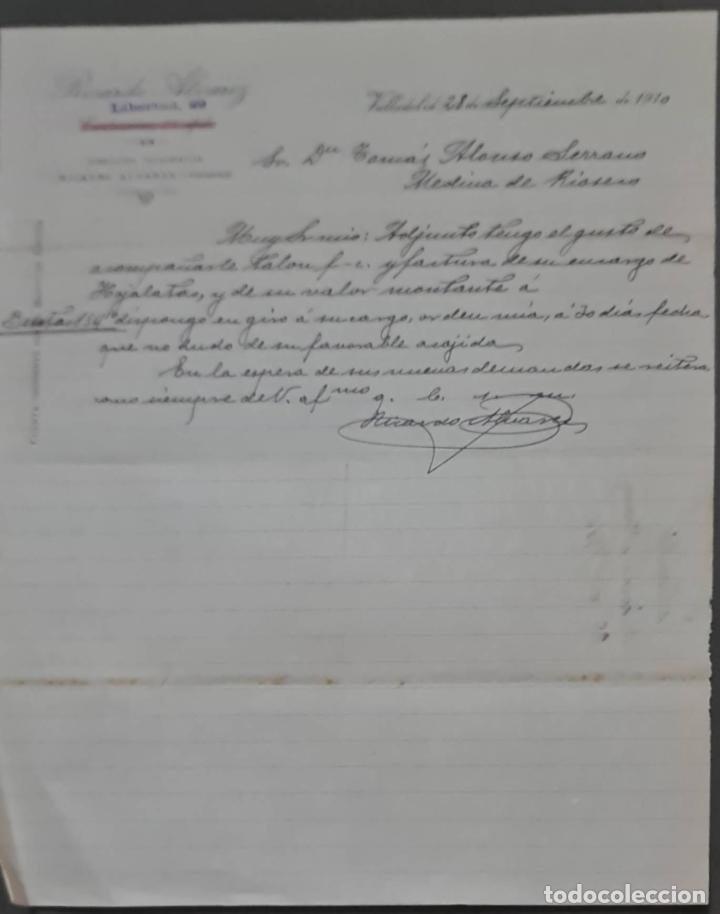 Ricardo Alvarez
Libertad, 20
Valladolid 28 de Septiembre de 1910
Sr. Dn Tomás Alonso Serrano
Medina de Rioseco
Muy Sr mio: Adjunto tengo el gusto de
acompañarle talon f-c. y factura de su encargo de
Hojalatas, y de su valor montante á
dispongo en giro á su cargo, orden mia, á 30 dias fecha
que no dudo de su favorable acojida
En la espera de sus nuevas demandas se reitera
como siempre de V. afmo q. b. s. m.
Ricardo Alvarez
todocoleccion